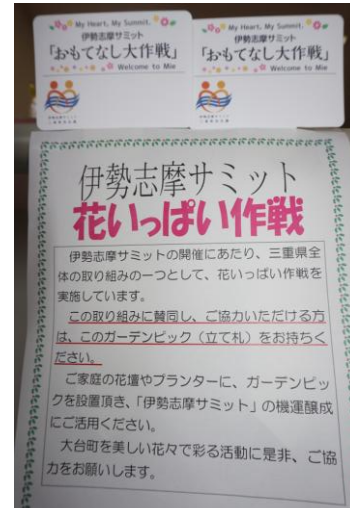 My Heart, My Summit.
伊勢志摩サミット
「おもてなし大作戦」
Welcome to Mie
My Heart, My Summit.
伊勢志摩サミット
「おもてなし大作戦」
Welcome to Mie
伊勢志摩サミット
花いっぱい作戦
伊勢志摩サミットの開催にあたり、三重県全
体の取り組みの一つとして、花いっぱい作戦を
実施しています。
この取り組みに賛同し、ご協力いただける方
は、このガーデンピック（立て札）をお持ちく
ださい。
ご家庭の花壇やプランターに、ガーデンピッ
クを設置頂き、「伊勢志摩サミット」の機運醸成
にご活用ください。
大台町を美しい花々で彩る活動に是非、ご協
力をお願いします。